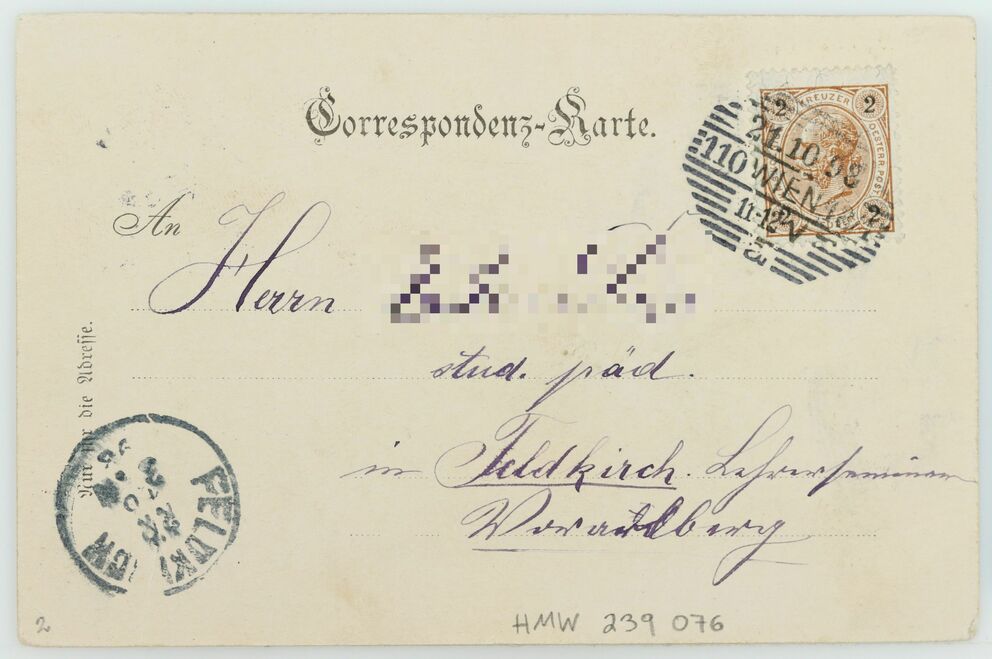 Correspondenz-Karte.
2 KREUZER 2
OESTERR. POST
2
21.10.98
110 WIEN
11-12 V
An
Herrn
stud. päd.
in Feldkirch. Lehrerseminar
Vorarlberg
Nur für die Adresse.
FELDKIRCH
2
HMW 239 076